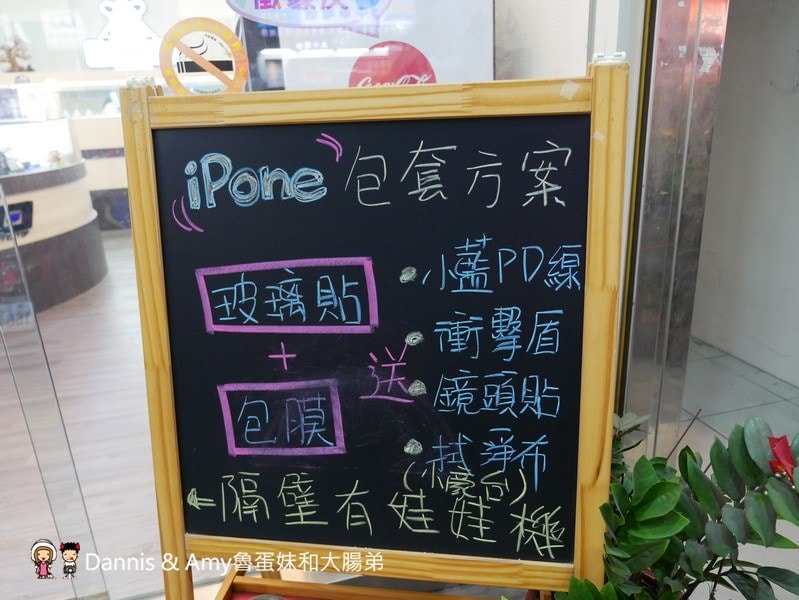 Coca-Cola
iPone 包套方案
玻璃貼
+
包膜
送
小藍PD線
衝擊盾
鏡頭貼
拭淨布
(小豪台)
←隔壁有娃娃機
Dannis & Amy魯蛋妹和大腸弟